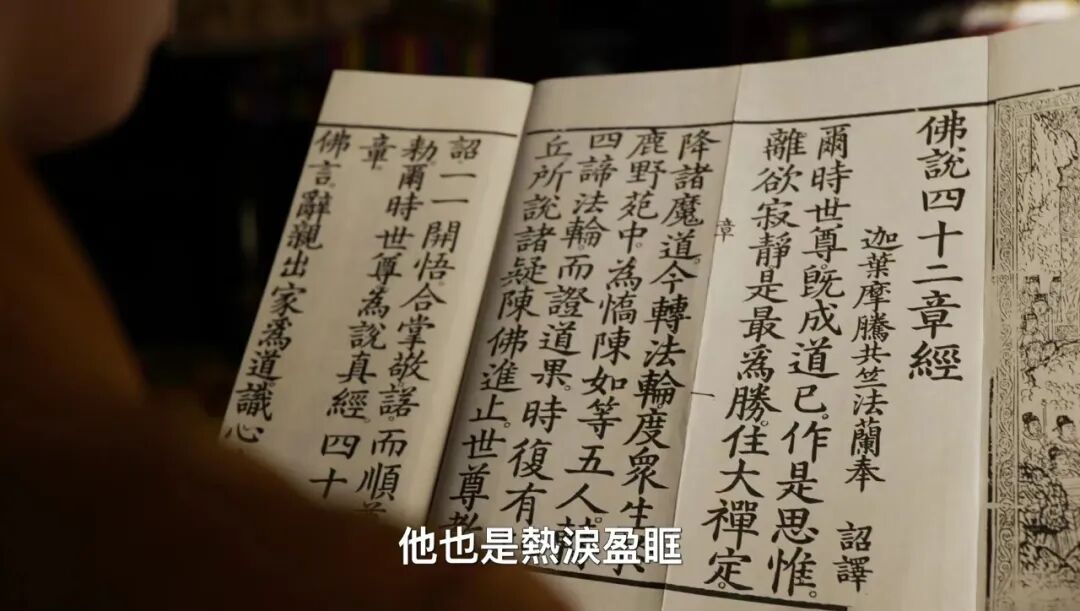 佛說四十二章經
迦葉摩騰共竺法蘭奉 詔譯
爾時世尊。旣成道已。作是思惟。
離欲寂靜是最爲勝。住大禪定。
章 一
降諸魔道。今轉法輪度衆生。
鹿野苑中。為憍陳如等五人。
四諦法輪。而證道果。時復有
丘所說諸疑陳佛進止。世尊教
詔。一一開悟。合掌敬諾。而順
勅。爾時世尊為說真經。四十
章
佛言。辭親出家爲道。識心
他也是熱淚盈眶